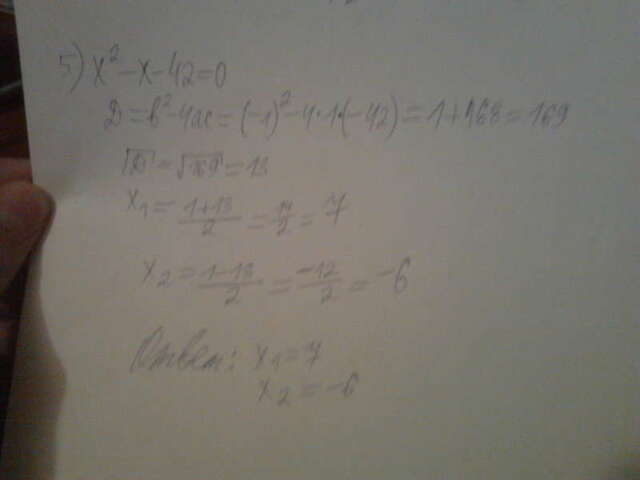 5) x² - x - 42 = 0
D = b² - 4ac = (-1)² - 4·1·(-42) = 1 + 168 = 169
√D = √169 = 13
x₁ = (1+13)/2 = 14/2 = 7
x₂ = (1-13)/2 = -12/2 = -6
Ответ: x₁ = 7
x₂ = -6